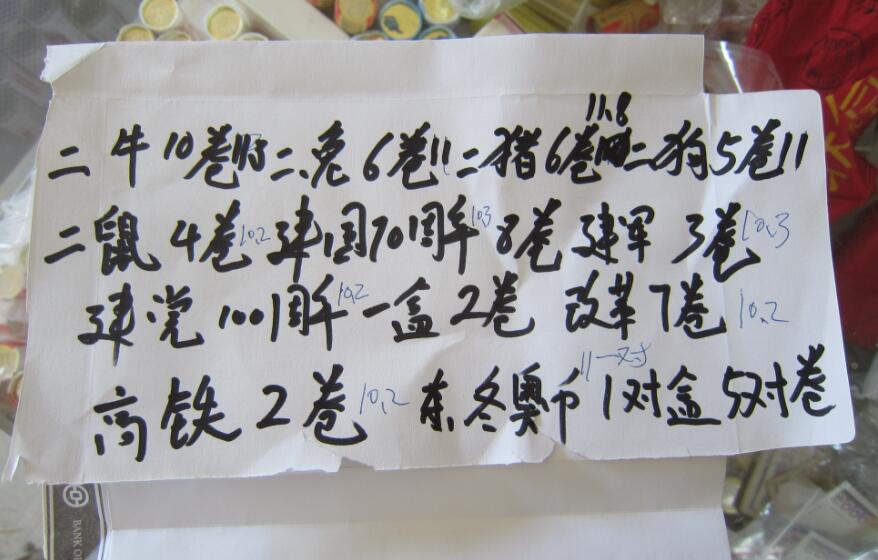 11.8
二牛10卷 二兔6卷11 二猪6卷 二狗5卷11
二鼠4卷10.2 建国70周年10.3 8卷 建军3卷10.3
建党100周年10.2 一盒2卷 改革7卷10.2
高铁2卷10.2 东冬奥币11一对 1对盒5对卷
BANK OF